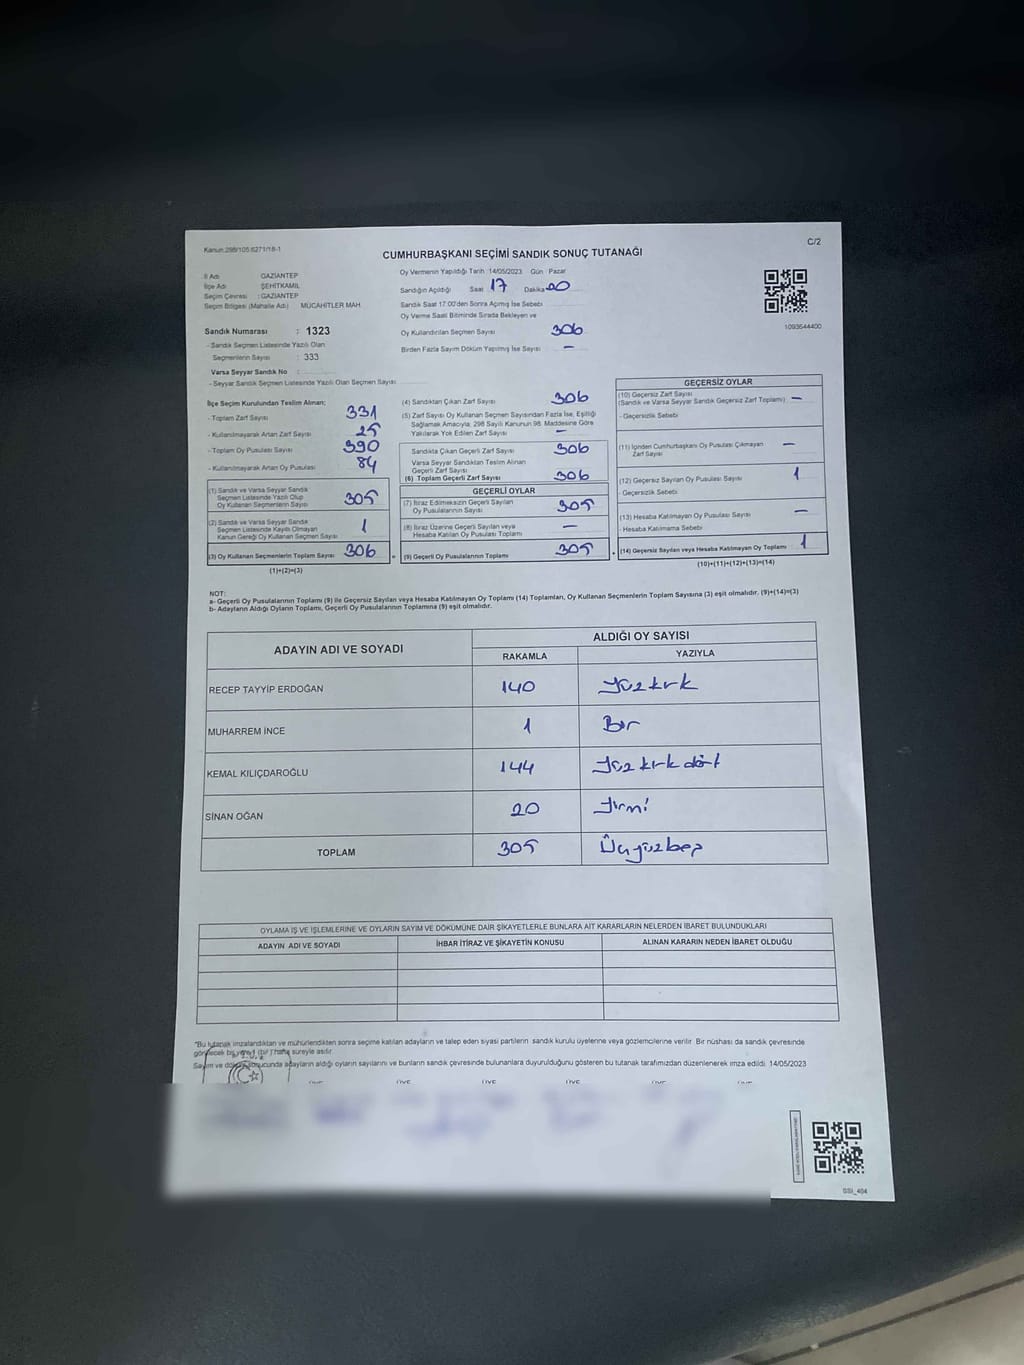 Kanun:298/105:6271/18-1
C/2
CUMHURBAŞKANI SEÇİMİ SANDIK SONUÇ TUTANAĞI
İl Adı GAZİANTEP
İlçe Adı ŞEHİTKAMİL
Seçim Çevresi : GAZİANTEP
Seçim Bölgesi (Mahalle Adı) MÜCAHİTLER MAH.
Sandık Numarası : 1323
- Sandık Seçmen Listesinde Yazılı Olan
Seçmenlerin Sayısı : 333
Varsa Seyyar Sandık No :
- Seyyar Sandık Seçmen Listesinde Yazılı Olan Seçmen Sayısı
Oy Vermenin Yapıldığı Tarih :14/05/2023 Gün : Pazar
Sandığın Açıldığı Saat 17 Dakika 00
Sandık Saat 17:00'den Sonra Açılmış İse Sebebi
Oy Verme Saati Bitiminde Sırada Bekleyen ve
Oy Kullandırılan Seçmen Sayısı 306
Birden Fazla Sayım Döküm Yapılmış İse Sayısı —
1093544400
İlçe Seçim Kurulundan Teslim Alınan;
- Toplam Zarf Sayısı 331
- Kullanılmayarak Artan Zarf Sayısı 25
- Toplam Oy Pusulası Sayısı 390
- Kullanılmayarak Artan Oy Pusulası 84
(1) Sandık ve Varsa Seyyar Sandık
Seçmen Listesinde Yazılı Olup
Oy Kullanan Seçmenlerin Sayısı 305
(2) Sandık ve Varsa Seyyar Sandık
Seçmen Listesinde Kayıtlı Olmayan
Kanun Gereği Oy Kullanan Seçmen Sayısı 1
(3) Oy Kullanan Seçmenlerin Toplam Sayısı 306
(1)+(2)=(3)
(4) Sandıktan Çıkan Zarf Sayısı 306
(5) Zarf Sayısı Oy Kullanan Seçmen Sayısından Fazla İse, Eşitliği
Sağlamak Amacıyla, 298 Sayılı Kanunun 98. Maddesine Göre
Yakılarak Yok Edilen Zarf Sayısı —
Sandıkta Çıkan Geçerli Zarf Sayısı 306
Varsa Seyyar Sandıktan Teslim Alınan
Geçerli Zarf Sayısı
(6) Toplam Geçerli Zarf Sayısı 306
GEÇERLİ OYLAR
(7) İtiraz Edilmeksizin Geçerli Sayılan
Oy Pusulalarının Sayısı 305
(8) İtiraz Üzerine Geçerli Sayılan veya
Hesaba Katılan Oy Pusulası Toplamı —
(9) Geçerli Oy Pusulalarının Toplamı 305
GEÇERSİZ OYLAR
(10) Geçersiz Zarf Sayısı
(Sandık ve Varsa Seyyar Sandık Geçersiz Zarf Toplamı) —
- Geçersizlik Sebebi
(11) İçinden Cumhurbaşkanı Oy Pusulası Çıkmayan
Zarf Sayısı —
(12) Geçersiz Sayılan Oy Pusulası Sayısı 1
- Geçersizlik Sebebi
(13) Hesaba Katılmayan Oy Pusulası Sayısı —
- Hesaba Katılmama Sebebi
(14) Geçersiz Sayılan veya Hesaba Katılmayan Oy Toplamı 1
(10)+(11)+(12)+(13)=(14)
NOT:
a- Geçerli Oy Pusulalarının Toplamı (9) ile Geçersiz Sayılan veya Hesaba Katılmayan Oy Toplamı (14) Toplamları, Oy Kullanan Seçmenlerin Toplam Sayısına (3) eşit olmalıdır. (9)+(14)=(3)
b- Adayların Aldığı Oyların Toplamı, Geçerli Oy Pusulalarının Toplamına (9) eşit olmalıdır.
ADAYIN ADI VE SOYADI ALDIĞI OY SAYISI
RAKAMLA YAZIYLA
RECEP TAYYİP ERDOĞAN 140 Yüzkırk
MUHARREM İNCE 1 Bir
KEMAL KILIÇDAROĞLU 144 Yüz kırk dört
SİNAN OĞAN 20 Yirmi
TOPLAM 305 Üçyüzbeş
OYLAMA İŞ VE İŞLEMLERİNE VE OYLARIN SAYIM VE DÖKÜMÜNE DAİR ŞİKAYETLERLE BUNLARA AİT KARARLARIN NELERDEN İBARET BULUNDUKLARI
ADAYIN ADI VE SOYADI İHBAR İTİRAZ VE ŞİKAYETİN KONUSU ALINAN KARARIN NEDEN İBARET OLDUĞU
"Bu tutanak imzalandıktan ve mühürlendikten sonra seçime katılan adayların ve talep eden siyasi partilerin sandık kurulu üyelerine veya gözlemcilerine verilir. Bir nüshası da sandık çevresinde
görülecek bir yere 1 (bir) hafta süreyle asılır.
Sayım ve döküm sonucunda adayların aldığı oyların sayılarını ve bunların sandık çevresinde bulunanlara duyurulduğunu gösteren bu tutanak tarafımızdan düzenlenerek imza edildi. 14/05/2023
ÜYE ÜYE ÜYE ÜYE ÜYE ÜYE
SSI_404